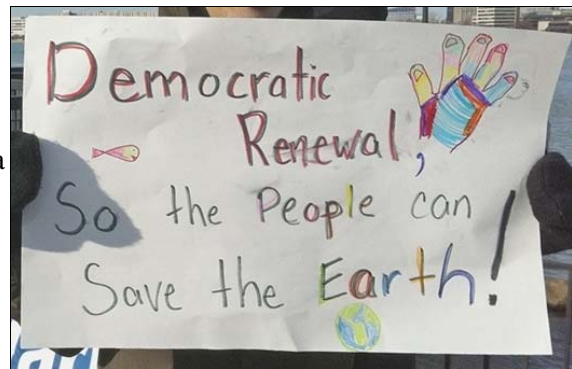 Democratic
Renewal,
So the People can
Save the Earth!
ar
a